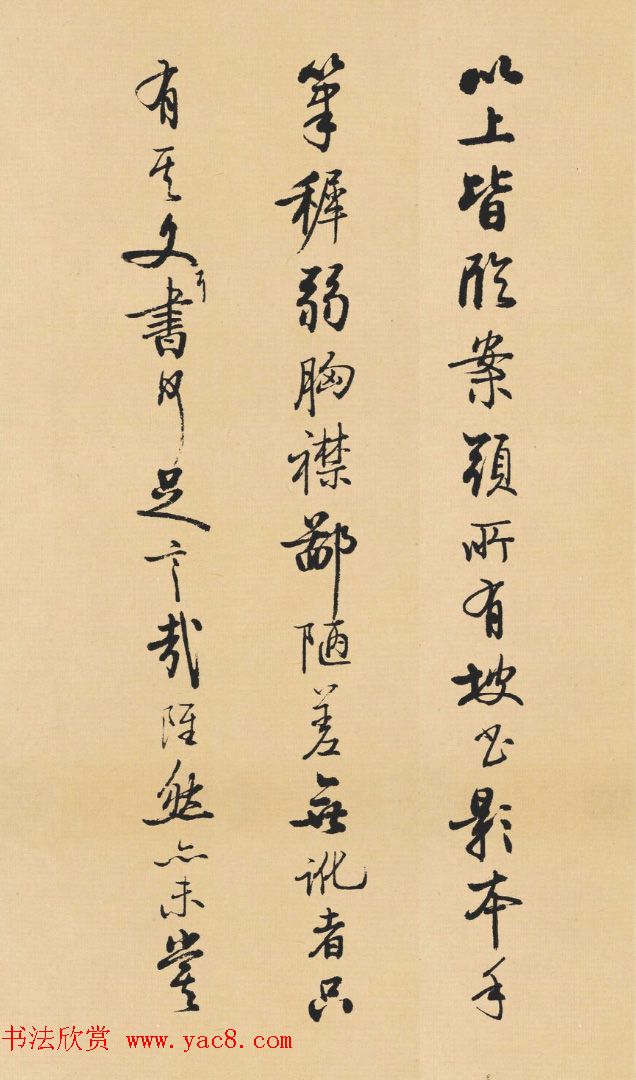 以上皆臨案頭所有坡書影本手
筆穉弱胸襟鄙陋差無訛者只
有其文耳書何足言哉雖然亦未嘗
书法欣赏 www.yac8.com